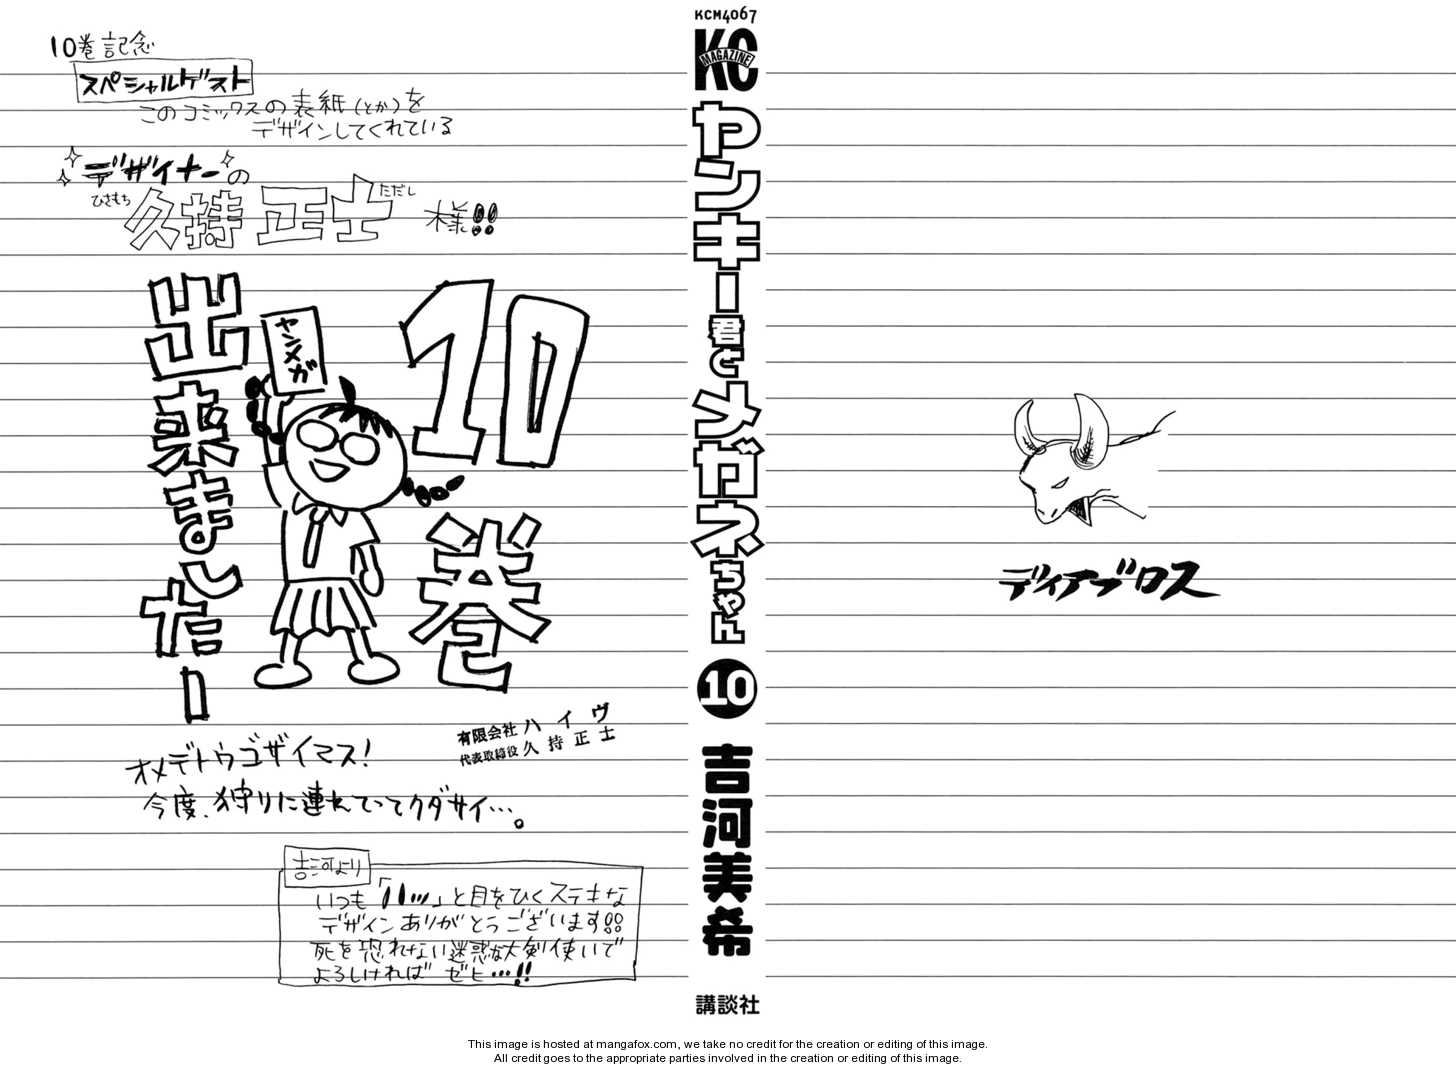 10巻記念
スペシャルゲスト
このコミックスの表紙(とか)を
デザインしてくれている
デザイナーの
ひさもち ただし
久持 正士 様!!
10巻
出来ましたー
ヤンメガ
有限会社 ハイヴ
代表取締役 久持正士
オメデトウゴザイマス!
今度、狩りに連れてってクダサイ…。
吉河より
いつも「ハッ」と目をひくステキな
デザインありがとうございます!!
死を恐れない迷惑な大剣使いで
よろしければ ゼヒ…!!
KCM4067
KC
MAGAZINE
ヤンキー君とメガネちゃん
10
吉河美希
講談社
ディアブロス
This image is hosted at mangafox.com, we take no credit for the creation or editing of this image.
All credit goes to the appropriate parties involved in the creation or editing of this image.